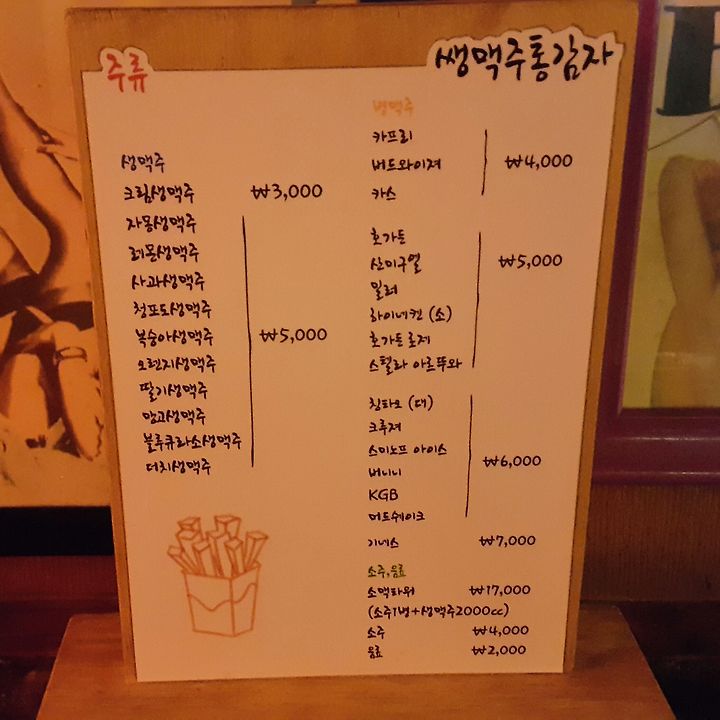 주류
쌩맥주통감자
생맥주
크림생맥주 ₩3,000
자몽생맥주
레몬생맥주
사과생맥주
청포도생맥주
복숭아생맥주 ₩5,000
오렌지생맥주
딸기생맥주
망고생맥주
블루큐라소생맥주
더치생맥주
병맥주
카프리
버드와이져 ₩4,000
카스
호가든
산미구엘 ₩5,000
밀러
하이네켄 (소)
호가든로제
스텔라 아르뚜와
칭따오 (대)
크루져
스미노프 아이스
버니니 ₩6,000
KGB
머드쉐이크
기네스 ₩7,000
소주,음료
소맥타워 ₩17,000
(소주1병+생맥주2000cc)
소주 ₩4,000
음료 ₩2,000